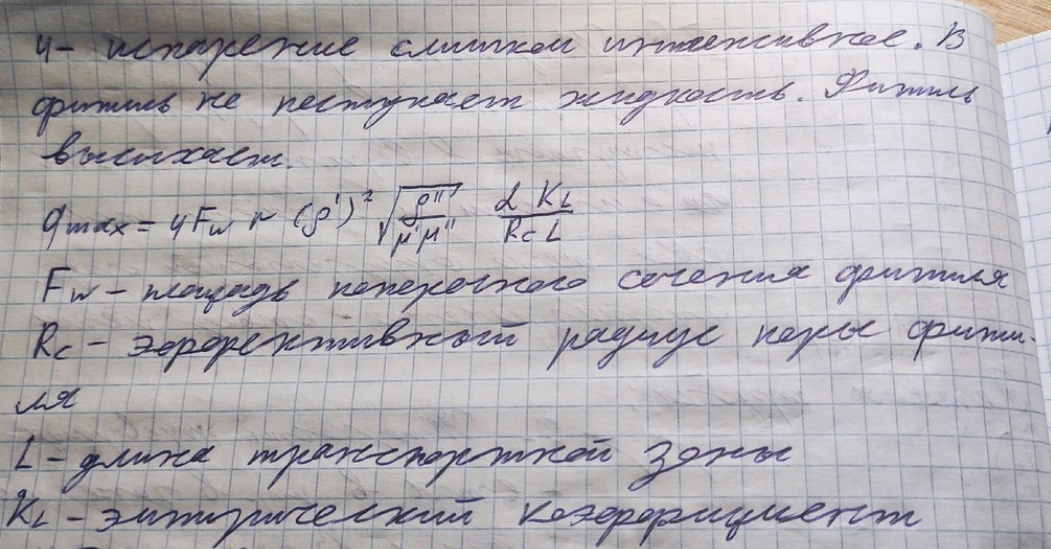 4 - испарение слишком интенсивное. В
фитиль не поступает жидкость. Фитиль
высыхает.
q max = 4 Fw r (ρ')² √(ρ''/μ'μ'') (α KL)/(Rc L)
Fw - площадь поперечного сечения фитиля
Rc - эффективный радиус поры фити-
ля
L - длина транспортной зоны
KL - эмпирический коэффициент